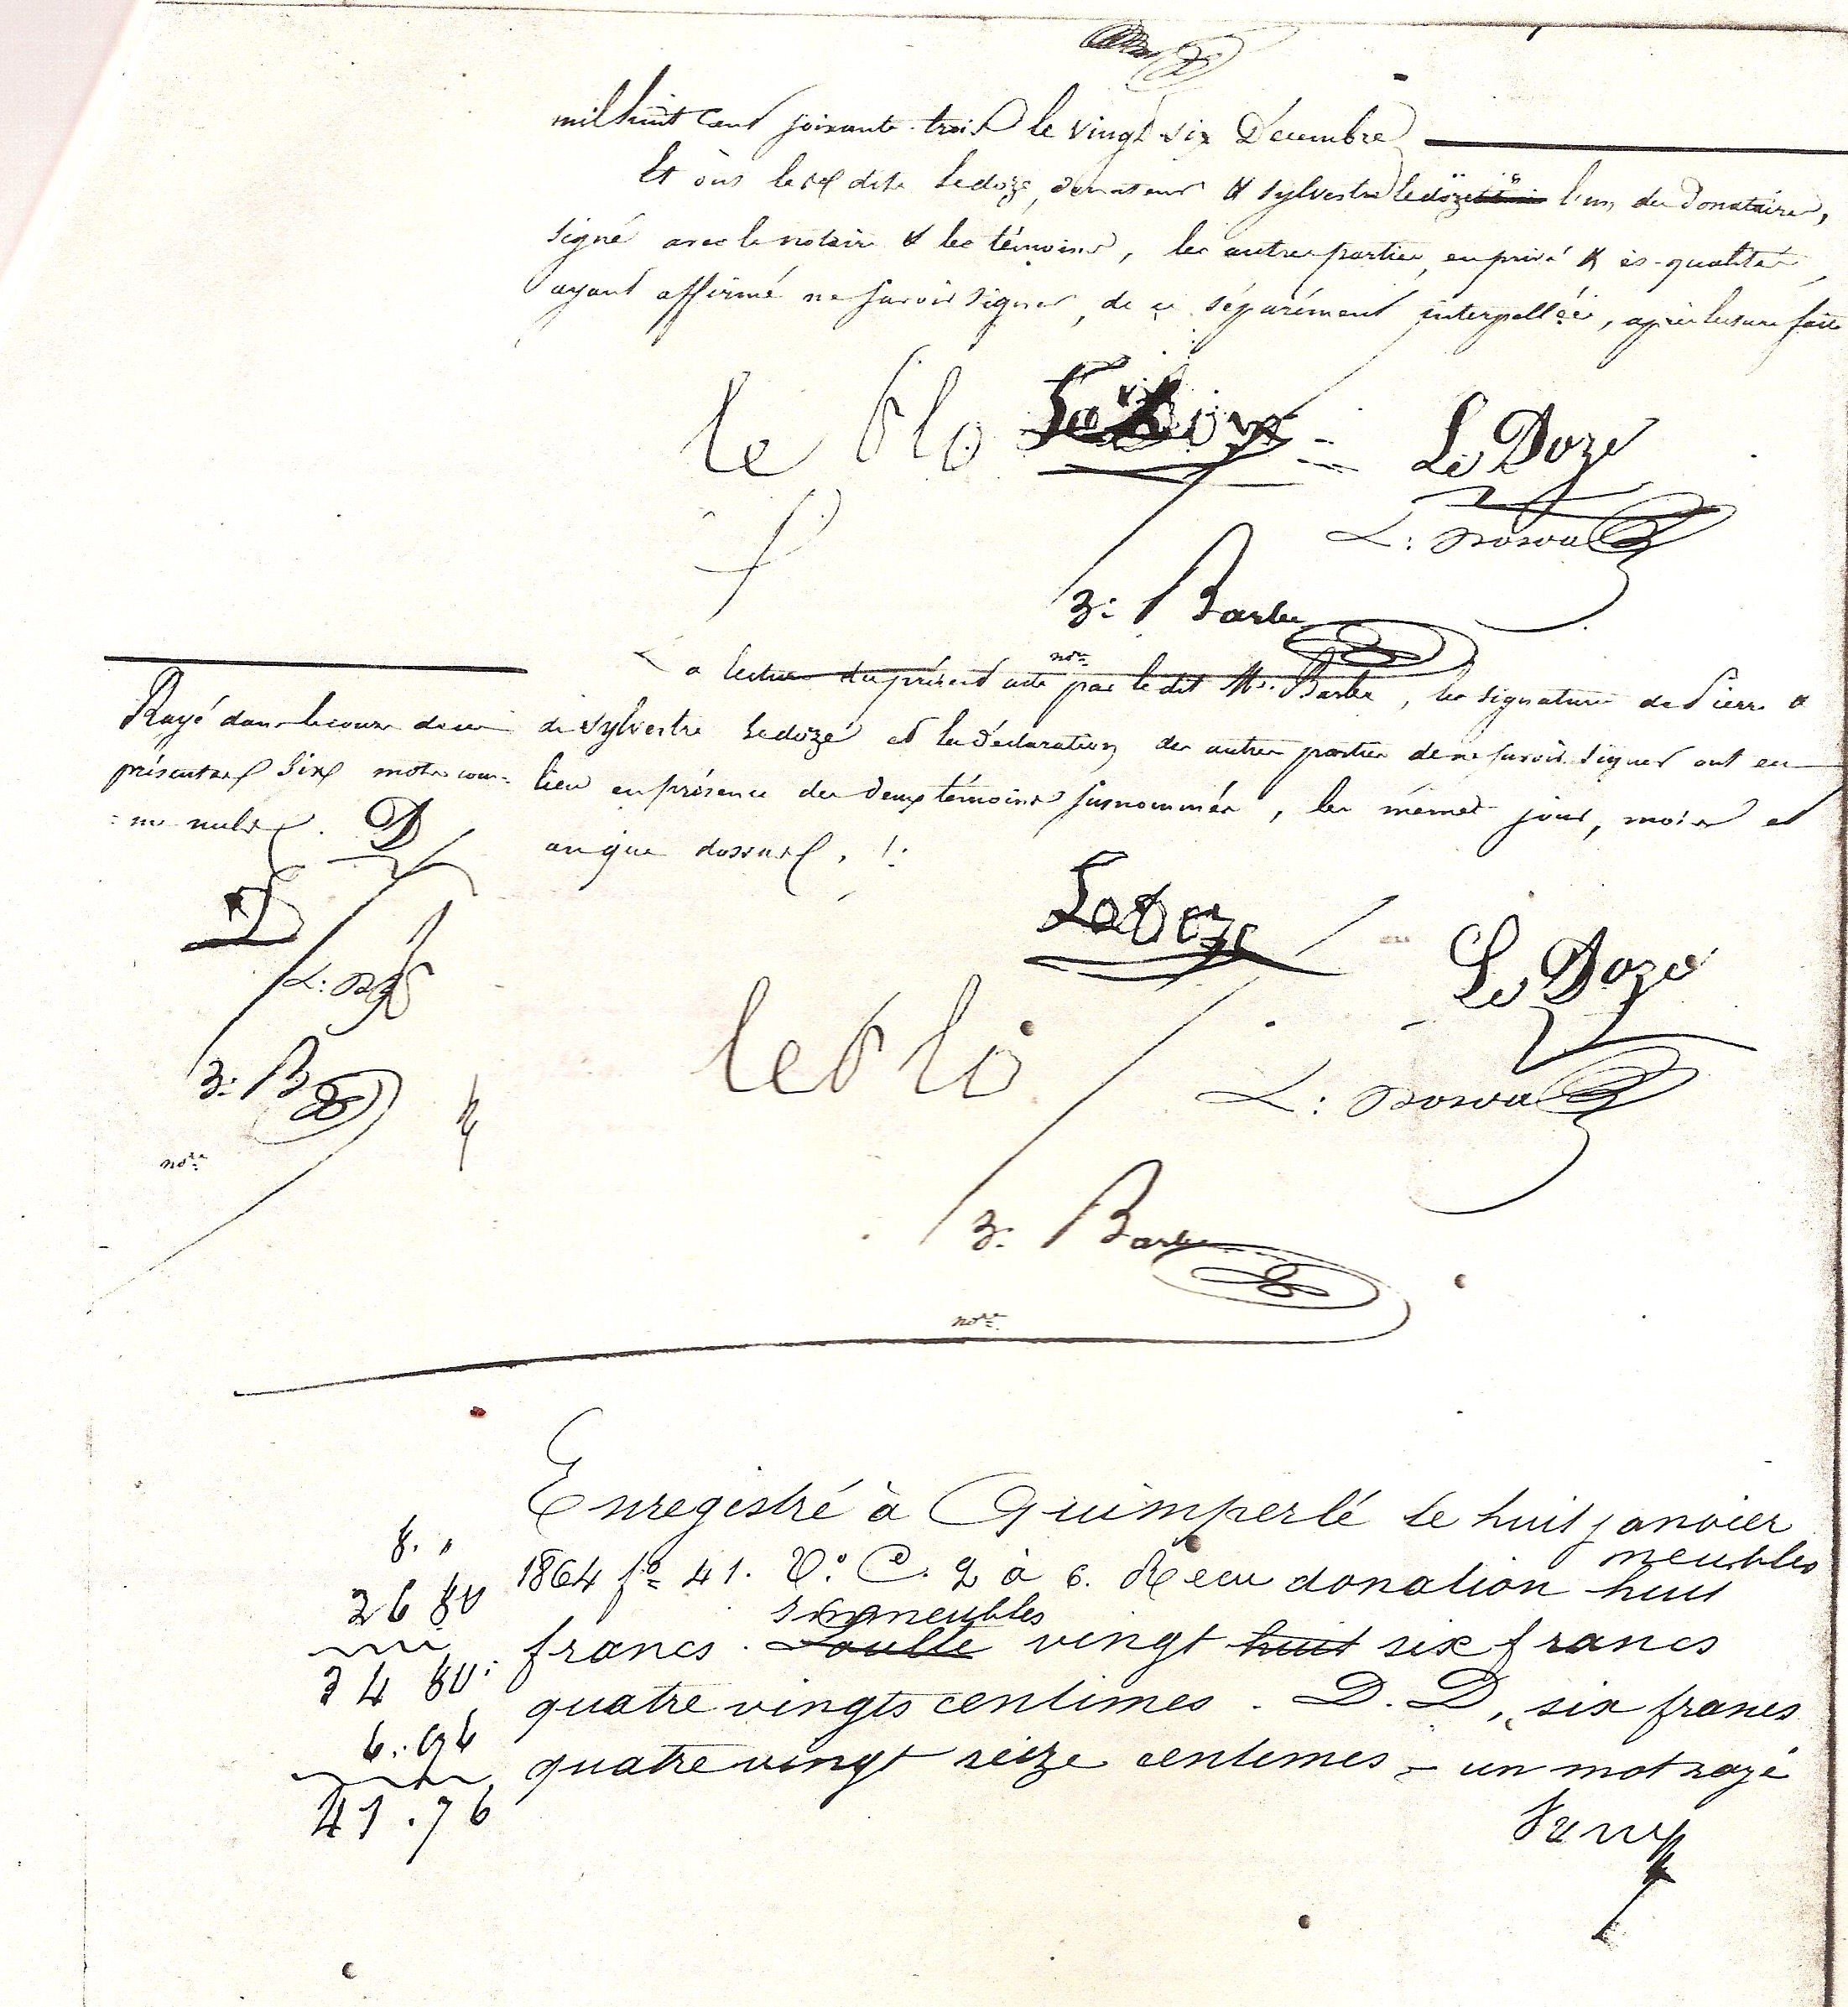 mil huit cent soixante-trois le vingt six Décembre
Et ont les dits Ledoze, donateur & Sylvestre Ledoze l'un des Donataires,
signé avec le notaire & les témoins, les autres parties, en privé & ès-qualités,
ayant affirmé ne savoir signer, de ce séparément interpellées, après lecture faite
le blo Le Doze Le Doze
L: 
3: Barbe
nore
La lecture du présent acte par le dit Me. Barbe, les signatures de Pierre &
de Sylvestre Ledoze et la déclaration des autres parties de ne savoir signer ont eu
lieu en présence des deux témoins susnommés, les mêmes jour, mois et
an que dessus. !:
Rayé dans le cours de ces
présentes six mots com=
=me nuls.
D
D
L:
3: B
nore
Ledoze Le Doze
le blo
L:
3: Barbe
nore
Enregistré à Quimperlé le huit janvier
1864 fo 41. Vo. C. 2 à 6. Reçu donation meubles huit
francs. immeubles Soulte vingt huit six francs
quatre vingts centimes. D. D, six francs
quatre vingt seize centimes - un mot rayé
8. "
26 80
34 80:
6.96
41.76